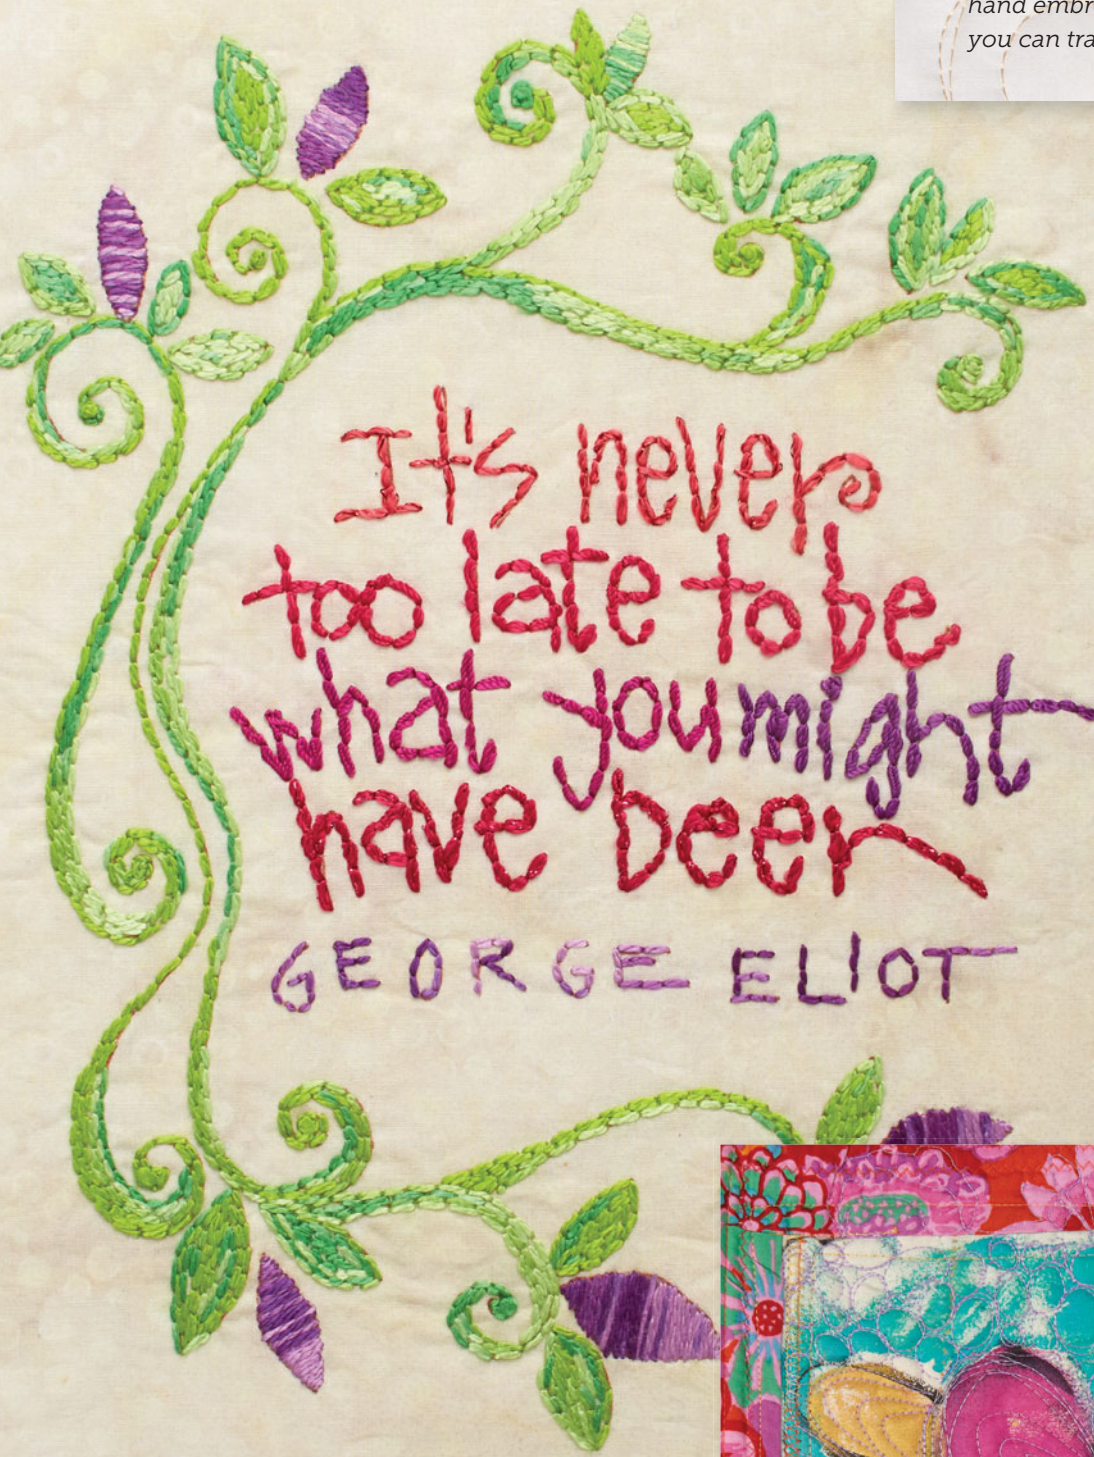 hand embr
you can tra
It's never
too late to be
what you might
have been
GEORGE ELIOT